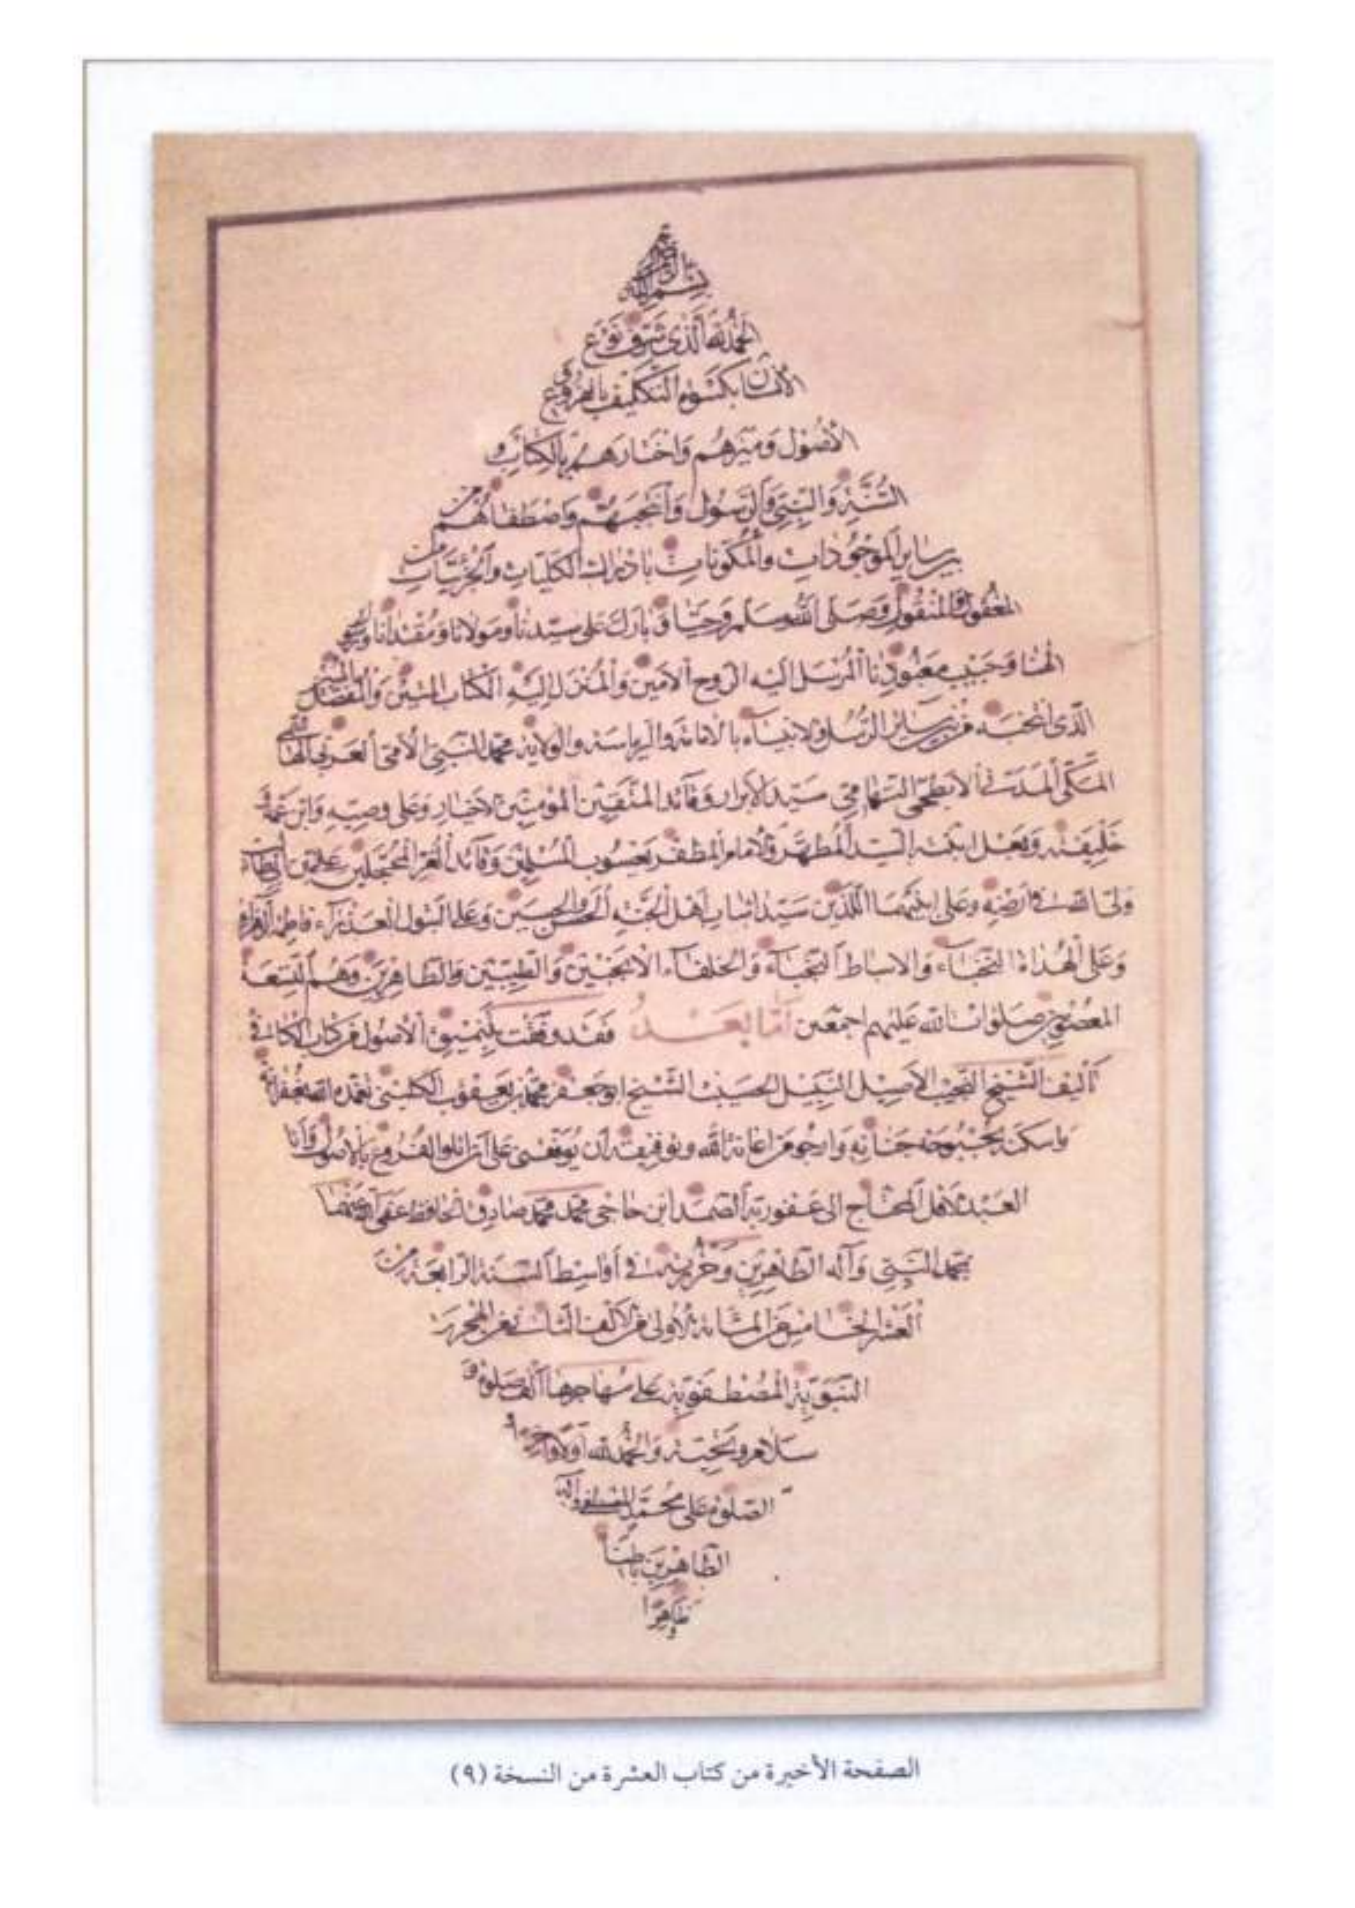 بسم الله
الرحمن الرحيم
الحمد لله الذي شرف نوع
الانسان بكسوة التكليف بالفروع و
الأصول وميزهم واختارهم بالكتاب و
السنة والنبي والرسول وانتجبهم واصطفاهم من
بين ساير الموجودات والمكونات بادراك الكليات والجزئيات من
المعقول والمنقول فصلى الله وسلم وحيا وبارك على سيدنا ومولانا ومقتدانا
الهنا وحبيب معبودنا المرسل اليه الروح الامين والمنزل إليه الكتاب المبين
الذي انتخبه من بين ساير الرسل والانبياء بالامانة والرياسة والولاية محمد النبي الأمي
المكي المدني الابطحي التهامي سيد الابرار وقائد المتقين المؤمنين الاخيار وعلى وصيه وابن عمه و
خليفته وبعل ابنته السيد المطهر والامام المظفر يعسوب المسلمين وقائد الغر المحجلين علي بن أبي طالب
ولي الله في ارضه وعلى ابنيهما اللذين سيدا شباب اهل الجنة الحسن والحسين وعلى البتول العذراء فاطمة الزهراء
وعلى الهداة النجباء والاسباط النجباء والخلفاء الانجبين والطيبين والطاهرين وهم التسعة
المعصومين صلوات الله عليهم اجمعين أما بعد فقد وفقت بتنميق الأصول من كتاب الكافي
تأليف الشيخ النجيب الاصيل النبيل الحسيب الشيخ ابو جعفر محمد بن يعقوب الكليني تغمده الله بغفرانه
واسكنه بحبوحة جنانه وارجو من اعانة الله وتوفيقه أن يوفقني على الفروع بالاصول وأنا
العبد الاقل المحتاج الى عفو ربه الصمد ابن حاجي محمد محمد صادق الحافظ عفى الله عنهما
بمحمد النبي وآله الطاهرين في أواسط السنة الرابعة من
العشر الخامس من المائة الاولى من الالف الثاني من الهجرة
النبوية المصطفوية على مهاجرها ألف صلوة و
سلام وتحية والحمد لله أولا وآخرا و
الصلوة على محمد المصطفى وآله
الطاهرين باطنا
وظاهرا
الصفحة الأخيرة من كتاب العشرة من النسخة (٩)